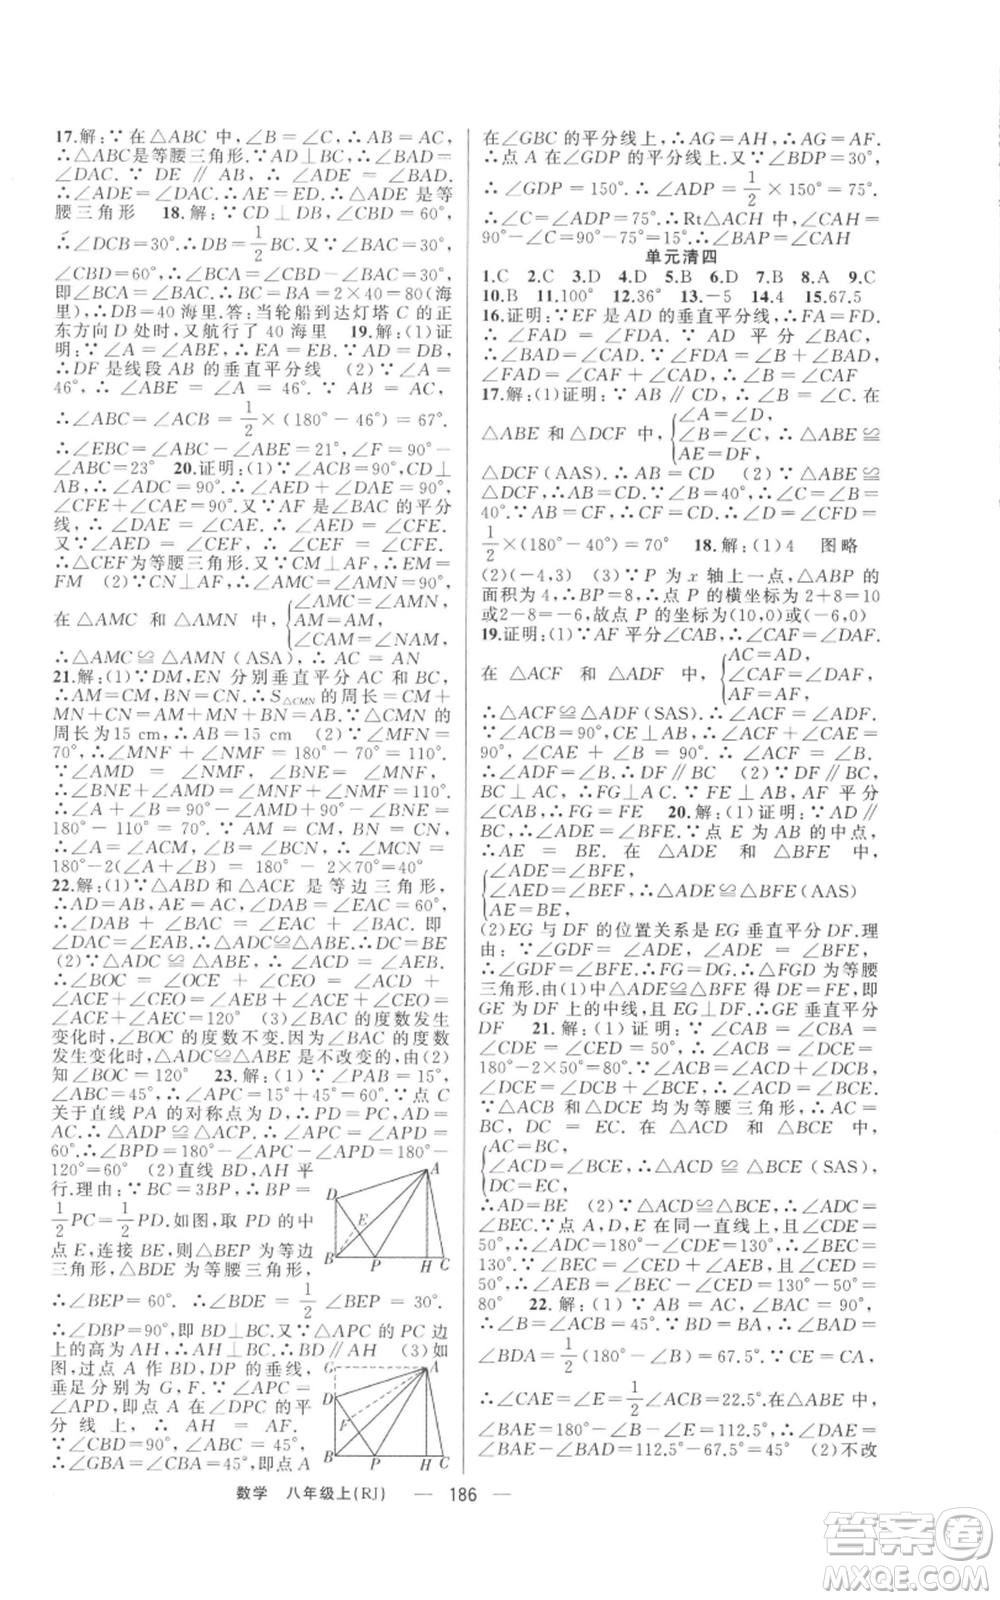 17.解:∵在△ABC 中,∠B=∠C,∴AB=AC,
∴△ABC是等腰三角形.∵AD⊥BC,∴∠BAD=
∠DAC. ∵DE∥AB,∴∠ADE=∠BAD.
∴∠ADE=∠DAC.∴AE=ED.∴△ADE 是等
腰三角形 18.解:∵CD⊥DB,∠CBD=60°,
∴∠DCB=30°.∴DB=1/2BC.又∵∠BAC=30°,
∠CBD=60°,∴∠BCA=∠CBD-∠BAC=30°,
即∠BCA=∠BAC.∴BC=AB=2×40=80(海
里).∴DB=40 海里.答:当轮船到达灯塔 C 的正
东方向 D 处时,又航行了 40 海里 19.解:(1)证
明:∵∠A=∠ABE,∴EA=EB.∵AD=DB,
∴DF是线段 AB 的垂直平分线 (2)∵∠A=
46°,∴∠ABE=∠A=46°.∵AB=AC,
∴∠ABC=∠ACB=1/2×(180°-46°)=67°.
∴∠EBC=∠ABC-∠ABE=21°,∠F=90°-
∠ABC=23° 20.证明:(1)∵∠ACB=90°,CD⊥
AB,∴∠ADC=90°.∴∠AED+∠DAE=90°,
∠CFE+∠CAE=90°.又∵AF是∠BAC的平分
线,∴∠DAE=∠CAE.∴∠AED=∠CFE.
又∵∠AED=∠CEF,∴∠CEF=∠CFE.
∴△CEF为等腰三角形.又∵CM⊥AF,∴EM=
FM (2)∵CN⊥AF,∴∠AMC=∠AMN=90°.
在△AMC 和△AMN 中,{∠AMC=∠AMN,
AM=AM,
∠CAM=∠NAM,
∴△AMC≌△AMN(ASA).∴AC=AN
21.解:(1)∵DM,EN 分别垂直平分 AC 和 BC,
∴AM=CM,BN=CN.∴S△CMN的周长=CM+
MN+CN=AM+MN+BN=AB.∵△CMN的
周长为15 cm,∴AB=15 cm (2)∵∠MFN=
70°,∴∠MNF+∠NMF=180°-70°=110°.
∵∠AMD=∠NMF,∠BNE=∠MNF,
∴∠BNE+∠AMD=∠MNF+∠NMF=110°.
∴∠A+∠B=90°-∠AMD+90°-∠BNE=
180°-110°=70°.∵AM=CM,BN=CN,
∴∠A=∠ACM,∠B=∠BCN.∴∠MCN=
180°-2(∠A+∠B)=180°-2×70°=40°
22.解:(1)∵△ABD和△ACE 是等边三角形,
∴AD=AB,AC=AE,∠DAB=∠EAC=60°.
∴∠DAB+∠BAC=∠EAC+∠BAC.即
∠DAC=∠EAB.∴△ADC≌△ABE.∴DC=BE
(2)∵△ADC≌△ABE,∴∠ACD=∠AEB.
∴∠BOC=∠OCE+∠CEO=∠ACD+
∠ACE+∠CEO=∠AEB+∠ACE+∠CEO=
∠ACE+∠AEC=120° (3)∠BAC的度数发生
变化时,∠BOC的度数不变.因为∠BAC的度数
发生变化时,△ADC≌△ABE是不改变的,由(2)
知∠BOC=120° 23.解:(1)∵∠PAB=15°,
∠ABC=45°,∴∠APC=15°+45°=60°.∵点 C
关于直线 PA 的对称点为 D,∴PD=PC,AD=
AC.∴△ADP≌△ACP.∴∠APC=∠APD=
60°.∴∠BPD=180°-∠APC-∠APD=180°-
120°=60° (2)直线 BD,AH 平
行.理由:∵BC=3BP,∴BP=
1/2PC=1/2PD.如图,取 PD 的中
点 E,连接 BE,则△BEP为等边
三角形,△BDE为等腰三角形,
∴∠BEP=60°.∴∠BDE=1/2∠BEP=30°.
∴∠DBP=90°,即 BD⊥BC.又∵△APC 的 PC 边
上的高为AH,∴AH⊥BC.∴BD∥AH (3)如
图,过点 A 作 BD,DP 的垂线,
垂足分别为 G,F.∵∠APC=
∠APD,即点 A 在∠DPC的平
分线上,∴AH=AF.
∵∠CBD=90°,∠ABC=45°,
∴∠GBA=∠CBA=45°,即点 A
A
D
E
B P H C
G
A
D
F
B P H C
在∠GBC 的平分线上,∴AG=AH,∴AG=AF.
∴点 A 在∠GDP 的平分线上.又∵∠BDP=30°,
∴∠GDP=150°.∴∠ADP=1/2×150°=75°.
∴∠C=∠ADP=75°.∴Rt△ACH 中,∠CAH=
90°-∠C=90°-75°=15°.∴∠BAP=∠CAH
单元清四
1.C 2.C 3.D 4.D 5.B 6.D 7.B 8.A 9.C
10.B 11.100° 12.36° 13.-5 14.4 15.67.5
16.证明:∵EF是AD的垂直平分线,∴FA=FD.
∴∠FAD=∠FDA.∵AD 平分∠BAC,
∴∠BAD=∠CAD.∵∠FDA=∠B+∠BAD,
∠FAD=∠CAF+∠CAD,∴∠B=∠CAF
17.解:(1)证明:∵AB∥CD,∴∠B=∠C.在
△ABE 和△DCF 中,{∠A=∠D,
∠B=∠C,
AE=DF,
∴△ABE≌
△DCF(AAS).∴AB=CD (2)∵△ABE≌
△DCF,∴BE=CF.∵∠B=40°,∴∠C=∠B=
40°.∵AB=CF,∴CF=CD.∴∠D=∠CFD=
1/2×(180°-40°)=70° 18.解:(1)4 图略
(2)(-4,3) (3)∵P 为 x 轴上一点,△ABP 的
面积为 4,∴BP=8,∴点 P 的横坐标为 2+8=10
或2-8=-6,故点 P 的坐标为(10,0)或(-6,0)
19.证明:(1)∵AF平分∠CAB,∴∠CAF=∠DAF.
在△ACF 和△ADF 中,{AC=AD,
∠CAF=∠DAF,
AF=AF,
∴△ACF≌△ADF(SAS).∴∠ACF=∠ADF.
∵∠ACB=90°,CE⊥AB,∴∠ACF+∠CAE=
90°,∠CAE+∠B=90°.∴∠ACF=∠B.
∴∠ADF=∠B.∴DF∥BC (2)∵DF∥BC,
BC⊥AC,∴FG⊥AC.∵FE⊥AB,AF 平分
∠CAB,∴FG=FE 20.解:(1)证明:∵AD∥
BC,∴∠ADE=∠BFE.∵点 E 为 AB 的中点,
∴AE=BE.在△ADE 和△BFE 中,
{∠ADE=∠BFE,
∠AED=∠BEF,∴△ADE≌△BFE(AAS)
AE=BE,
(2)EG 与 DF 的位置关系是 EG 垂直平分 DF.理
由:∵∠GDF=∠ADE,∠ADE=∠BFE,
∴∠GDF=∠BFE.∴FG=DG.∴△FGD为等腰
三角形.由(1)中△ADE≌△BFE 得 DE=FE,即
GE 为 DF 上的中线,∴GE⊥DF.∴GE 垂直平分
DF 21.解:(1)证明:∵∠CAB=∠CBA=
∠CDE=∠CED=50°,∴∠ACB=∠DCE=
180°-2×50°=80°.∵∠ACB=∠ACD+∠DCB,
∠DCE=∠DCB+∠BCE,∴∠ACD=∠BCE.
∵△ACB 和△DCE 均为等腰三角形,∴AC=
BC,DC=EC.在△ACD 和△BCE 中,
{AC=BC,
∠ACD=∠BCE,∴△ACD≌△BCE(SAS).
DC=EC,
∴AD=BE (2)∵△ACD≌△BCE,∴∠ADC=
∠BEC.∵点 A,D,E 在同一直线上,且∠CDE=
50°,∴∠ADC=180°-∠CDE=130°,∴∠BEC=
130°.∵∠BEC=∠CED+∠AEB,且∠CED=
50°,∴∠AEB=∠BEC-∠CED=130°-50°=
80° 22.解:(1)∵AB=AC,∠BAC=90°,
∴∠B=∠ACB=45°.∵BD=BA,∴∠BAD=
∠BDA=1/2(180°-∠B)=67.5°.∵CE=CA,
∴∠CAE=∠E=1/2∠ACB=22.5°.在△ABE中,
∠BAE=180°-∠B-∠E=112.5°,∴∠DAE=
∠BAE-∠BAD=112.5°-67.5°=45° (2)不改
数学 八年级上(RJ) — 186 —
答案圈
MXQE.COM